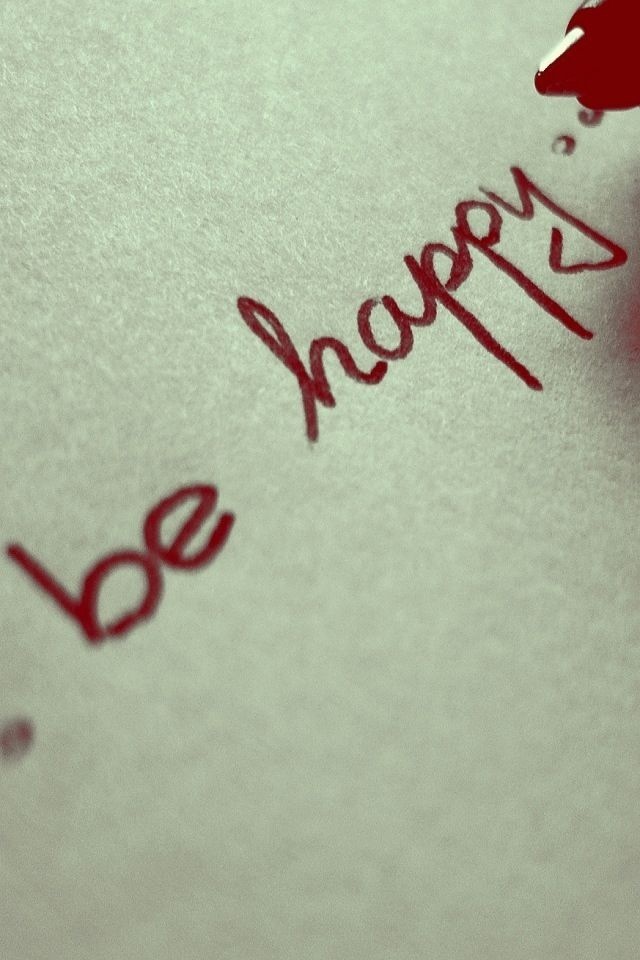 be happy